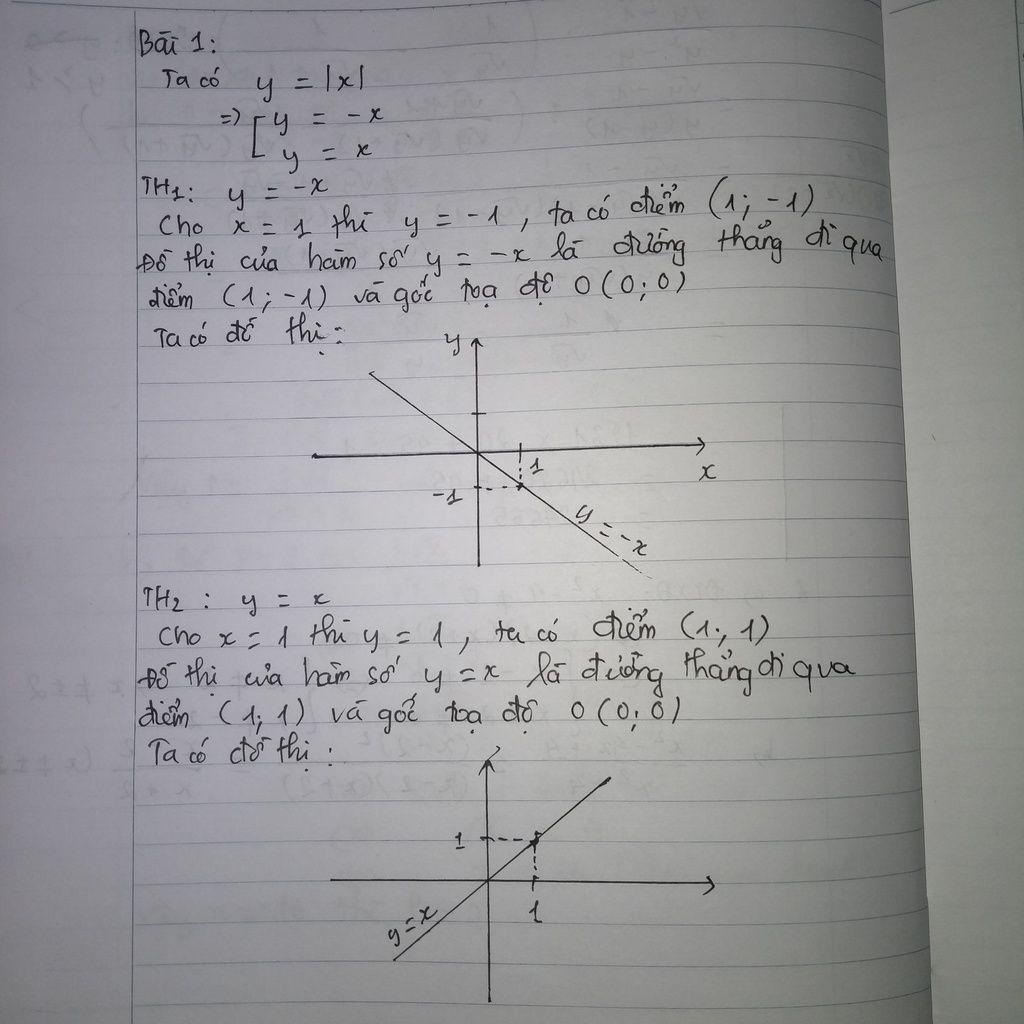 Bài 1:
Ta có y = |x|
=> [ y = -x
y = x
TH1: y = -x
Cho x = 1 thì y = -1, ta có điểm (1; -1)
Đồ thị của hàm số y = -x là đường thẳng đi qua
điểm (1; -1) và gốc toạ độ O(0; 0)
Ta có đồ thị:
y
1
x
-1
y = -x
TH2: y = x
Cho x = 1 thì y = 1, ta có điểm (1; 1)
Đồ thị của hàm số y = x là đường thẳng đi qua
điểm (1; 1) và gốc toạ độ O(0; 0)
Ta có đồ thị:
1
1
y = x